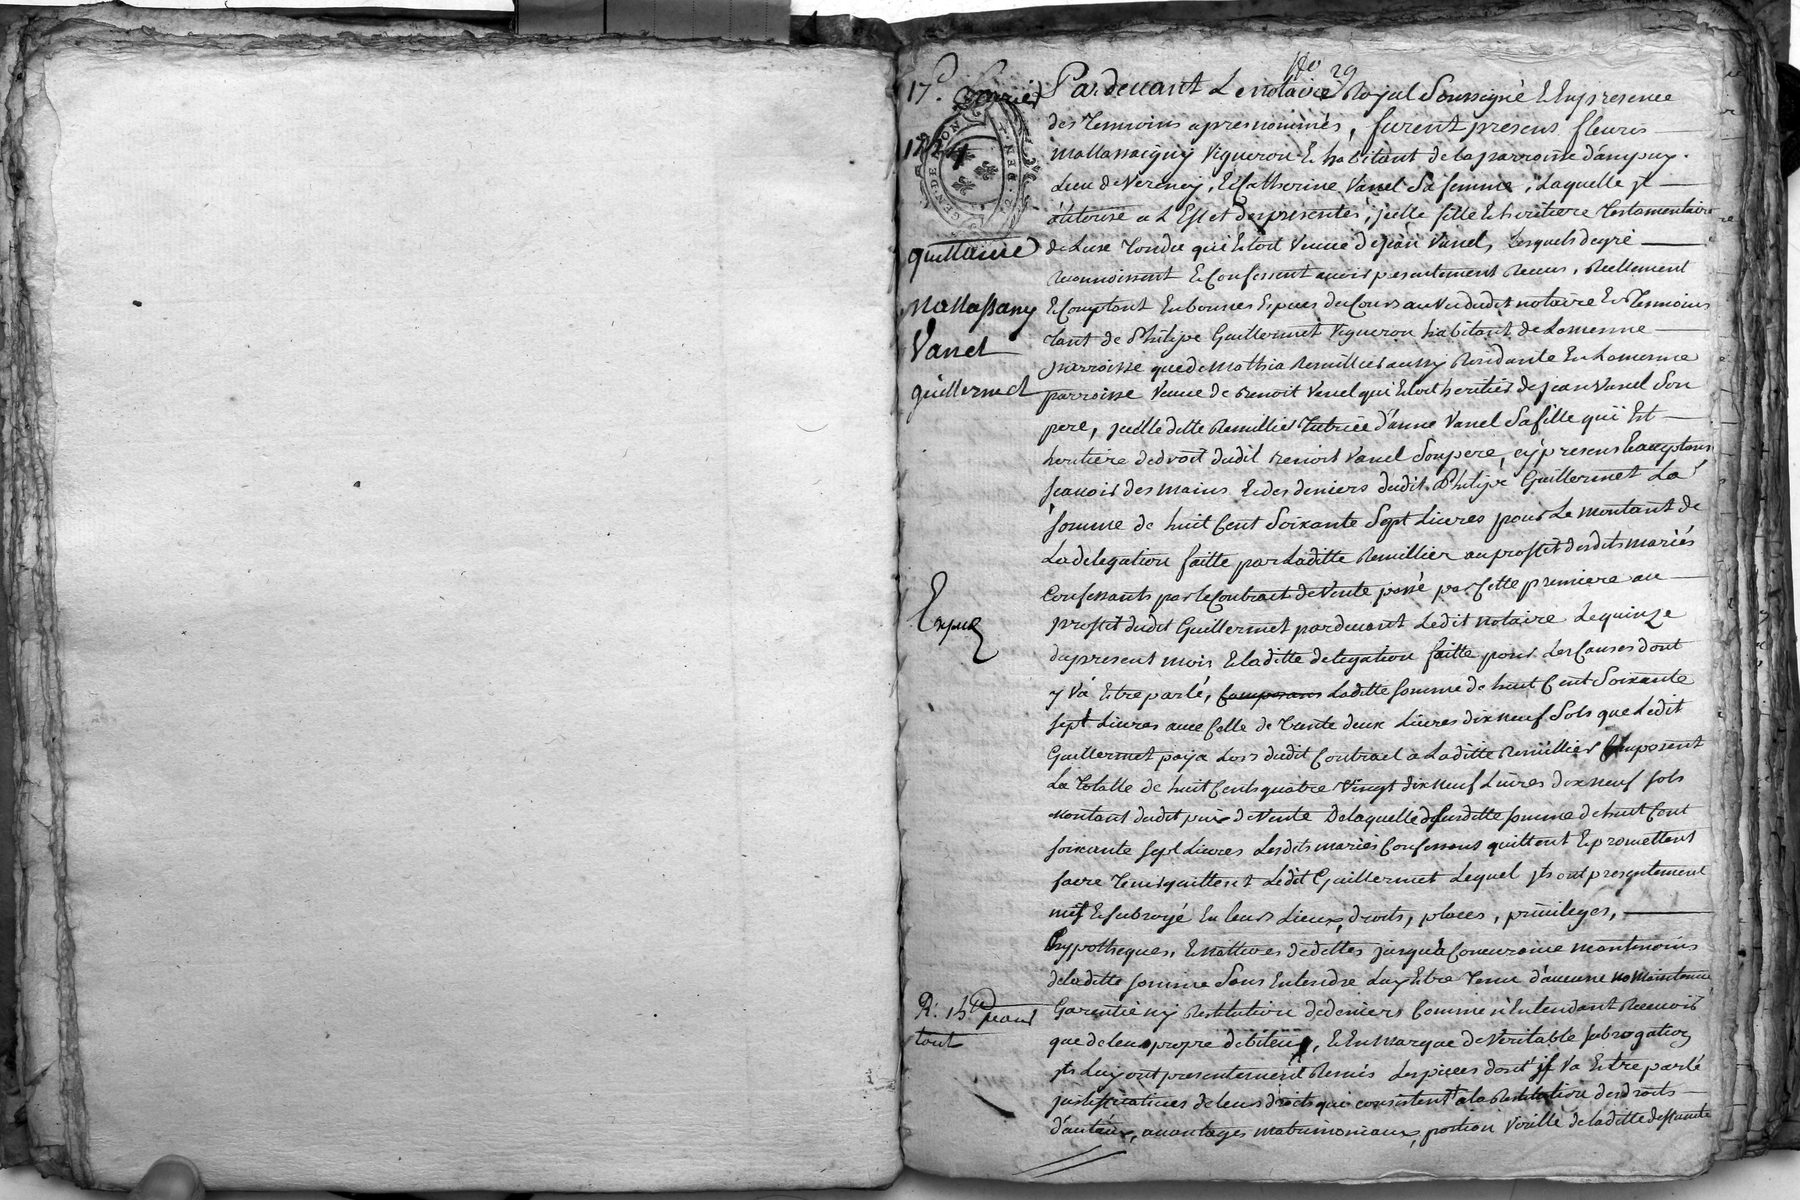 No 29
17 fevrier
GEN. DE LYON
quittance
Mallassany
Vanel
guillermet
Expié
R: 15 s
tout
Par devant Le notaire Royal Soussigné & En presence
des Temoins apres nommés, furent presens fleuris
Mallassaigny Vigneron & habitant de la parroisse d'ampuy
Lieu de Verenay, & Catherine Vanel Sa femme, Laquelle jl
autorise a L'Effet des presentes, jcelle fille & heritiere Testamentaire
de Luse Tondu qui Etoit Veuve de jean Vanel, Lesquels de gré
Reconnoissent & Confessent avoir presentement Receu, Reellement
& Comptant En bonnes Especes du Cours au Vu dudit notaire & Temoins
Tant de Philipe Guillermet Vigneron habitant de Lamenne
parroisse que de Mathia Remillier aussy Residante En Lamenne
parroisse Veuve de Benoit Vanel qui Etoit heritier de jean Vanel Son
pere, jcelle ditte Remillier Tutrice d'anne Vanel Sa fille qui Est
heritiere de droit dudit Benoit Vanel Son pere, cy presens & acceptans
scavoir des mains & des deniers dudit Philipe Guillermet La
somme de huit Cent Soixante Sept Livres pour Le montant de
La delegation faitte par Laditte Remillier au proffit desdits mariés
Confessants par le Contract de Vente passé par Cette premiere au
proffit dudit Guillermet par devant Ledit notaire Le quinze
du present mois & laditte delegation faitte pour Les Causes dont
y Va Etre parlé, Laditte somme de huit Cent Soixante
sept Livres avec Celle de Trente deux Livres dix neuf Sols que Ledit
Guillermet paya Lors dudit Contract a Laditte Remillier Composent
La Totalle de huit Cents quatre Vingt dix neuf Livres dix neuf sols
montant dudit prix de Vente De laquelle susditte somme de huit Cent
soixante sept Livres Lesdits mariés Confessans quittent & promettent
faire Tenir quittent Ledit Guillermet Lequel jls ont presentement
mis & subrogé En leurs Lieux, droits, places, privileges,
hypotheques, & natures de dettes jusqu'a Concurance neantmoins
de laditte somme Sans Entendre Luy Etre Tenu d'aucune Maintenue
Garentie ny Restitution de deniers Comme n'Entendant Recevoir
que de leur propre debiteur, & En Marque de Veritable subrogation
jls Luy ont presentement Remis Les pieces dont jl Va Etre parlé
justificatives de leurs droits qui consistent a la Restitution des droits
d'auteur, avantages matrimoniaux, portion Virille de laditte deffunte